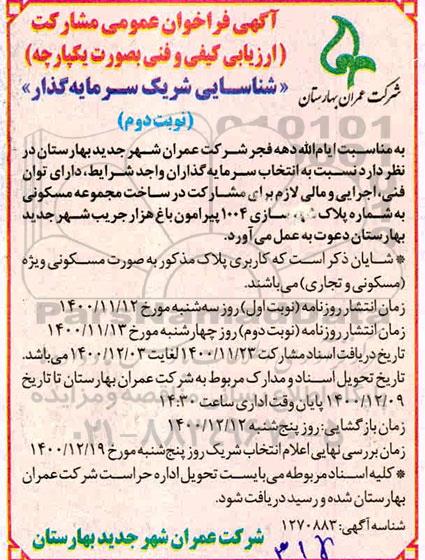 آگهی فراخوان عمومی مشارکت
(ارزیابی کیفی و فنی بصورت یکپارچه)
«شناسایی شریک سرمایه‌گذار»
(نوبت دوم)
شرکت عمران بهارستان
به مناسبت ایام‌الله دهه فجر شرکت عمران شهر جدید بهارستان در
نظر دارد نسبت به انتخاب سرمایه‌گذاران واجد شرایط، دارای توان
فنی، اجرایی و مالی لازم برای مشارکت در ساخت مجموعه مسکونی
به شماره پلاک شهرسازی ۱۰۰۴ پیرامون باغ هزار جریب شهر جدید
بهارستان دعوت به عمل می‌آورد.
* شایان ذکر است که کاربری پلاک مذکور به صورت مسکونی ویژه
(مسکونی و تجاری) می‌باشند.
زمان انتشار روزنامه (نوبت اول) روز سه‌شنبه مورخ ۱۴۰۰/۱۱/۱۲
زمان انتشار روزنامه (نوبت دوم) روز چهارشنبه مورخ ۱۴۰۰/۱۱/۱۳
تاریخ دریافت اسناد مشارکت ۱۴۰۰/۱۱/۲۳ لغایت ۱۴۰۰/۱۲/۰۳ می‌باشد.
تاریخ تحویل اسناد و مدارک مربوط به شرکت عمران بهارستان تا تاریخ
۱۴۰۰/۱۲/۰۹ پایان وقت اداری ساعت ۱۴:۳۰
زمان بازگشایی: روز پنج‌شنبه ۱۴۰۰/۱۲/۱۲
زمان بررسی نهایی اعلام انتخاب شریک روز پنج‌شنبه مورخ ۱۴۰۰/۱۲/۱۹
* کلیه اسناد مربوطه می‌بایست تحویل اداره حراست شرکت عمران
بهارستان شده و رسید دریافت شود.
شناسه آگهی: ۱۲۷۰۸۸۳
شرکت عمران شهر جدید بهارستان